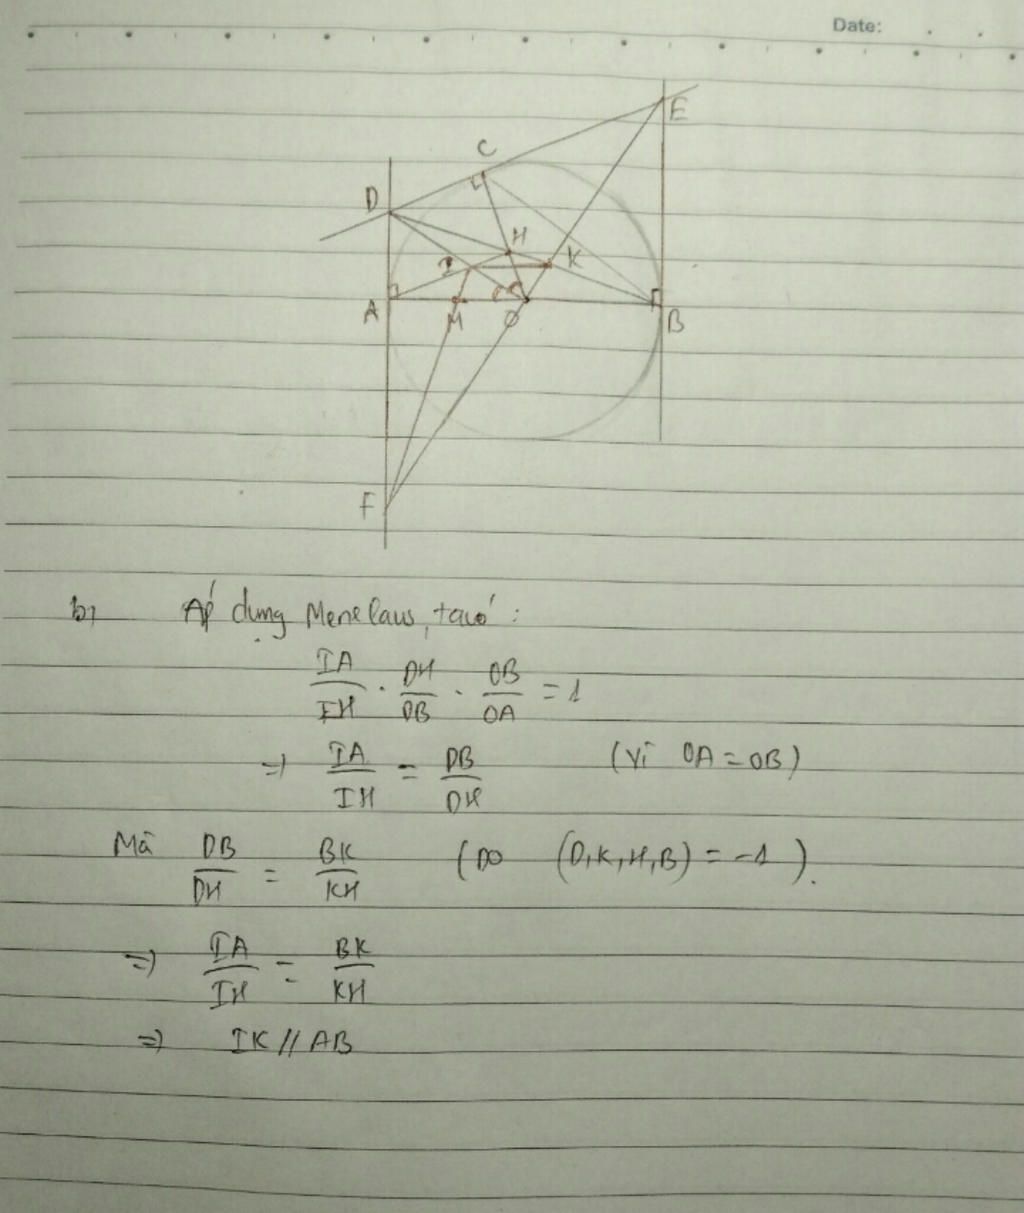 Date:
E
C
D
H
I
K
A
M
O
B
F
b,
Áp dụng Menelaus, ta có :
IA/IH . DH/DB . OB/OA = 1
=> IA/IH = DB/DH (Vì OA = OB)
Mà DB/DH = BK/KH (Do (D,K,H,B) = -1 ).
=> IA/IH = BK/KH
=> IK // AB